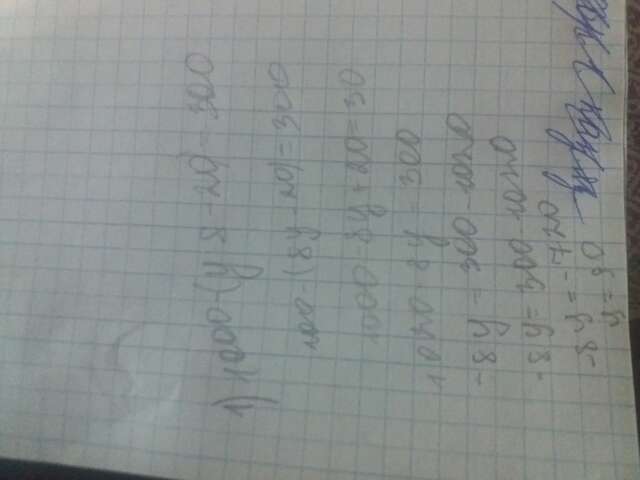 1) 1000-(y·8-20)=300
100-(8y-20)=300
1000-8y+20=30
1020-8y=300
-8y=300-1020
-8y=300-1020
-8y=-720
y=90